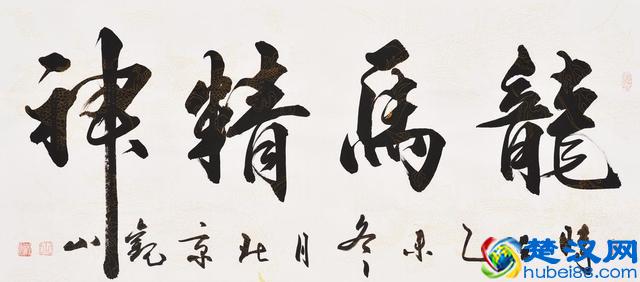 龍馬精神
乙未冬月北京觀山
楚汉网
hubei88.com